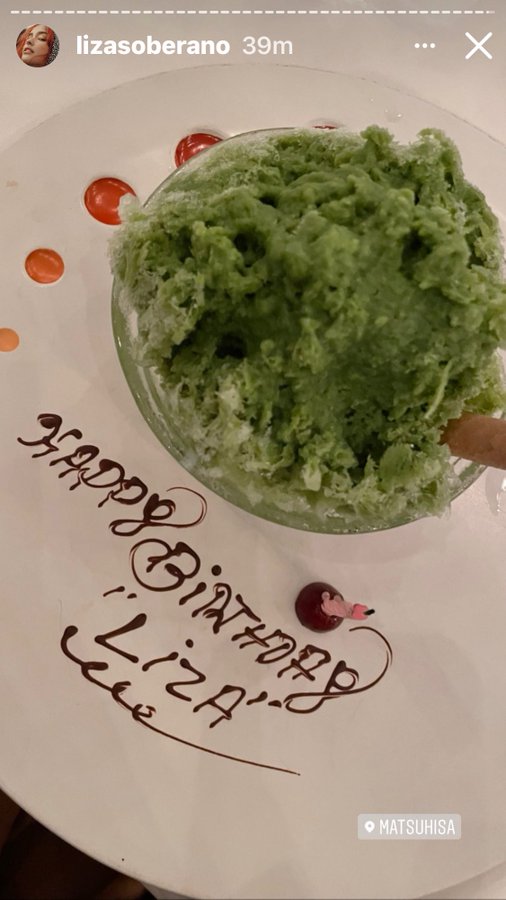 lizasoberano 39m
HAPPY
BiRTHDAY
"LiZA"
MATSUHISA